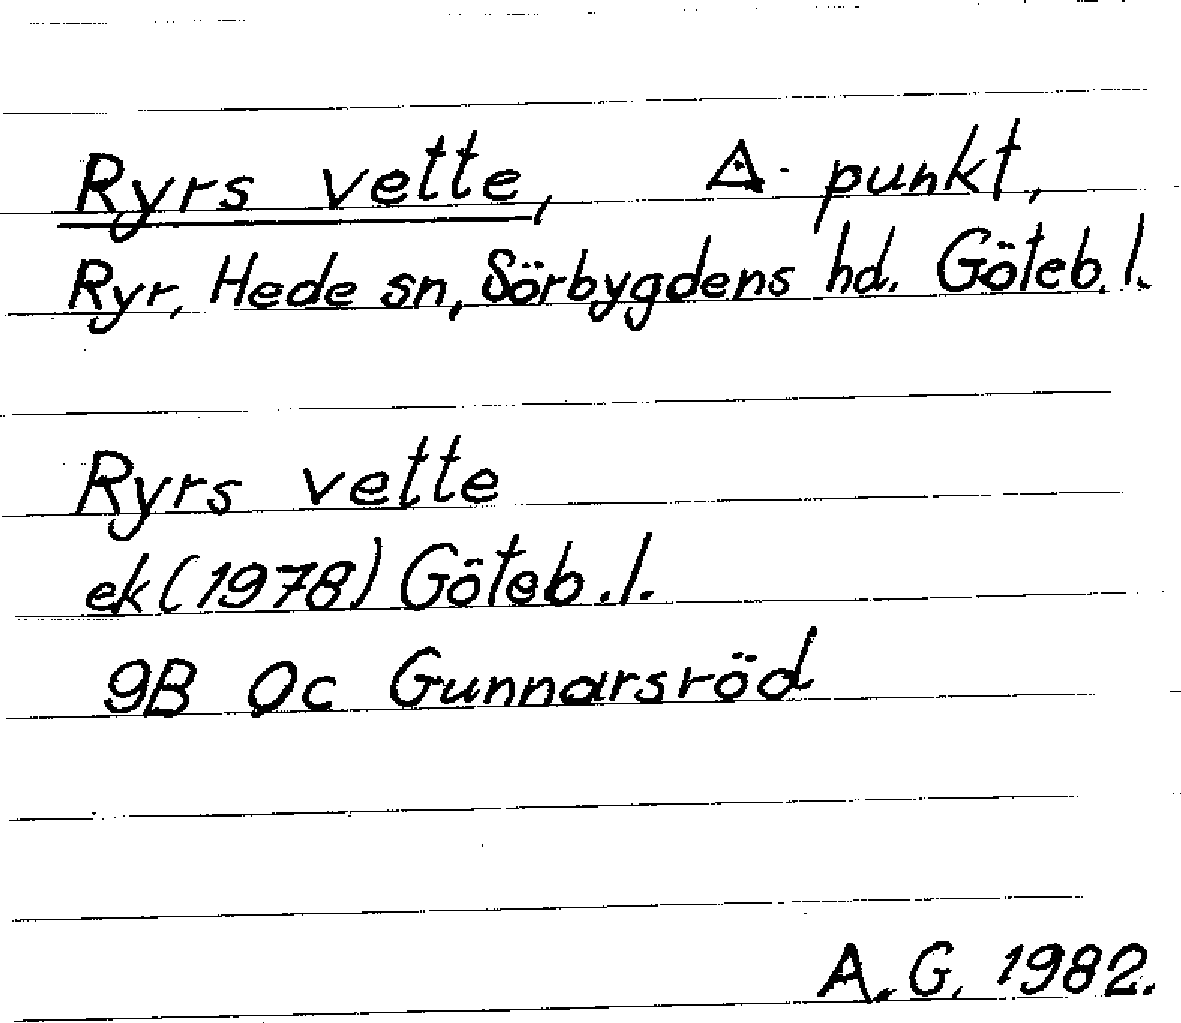 Ryrs vette, △-punkt,
Ryr, Hede sn, Sörbygdens hd. Göteb. l.
Ryrs vette
ek (1978) Göteb. l.
9B 0c Gunnarsröd
A. G. 1982.